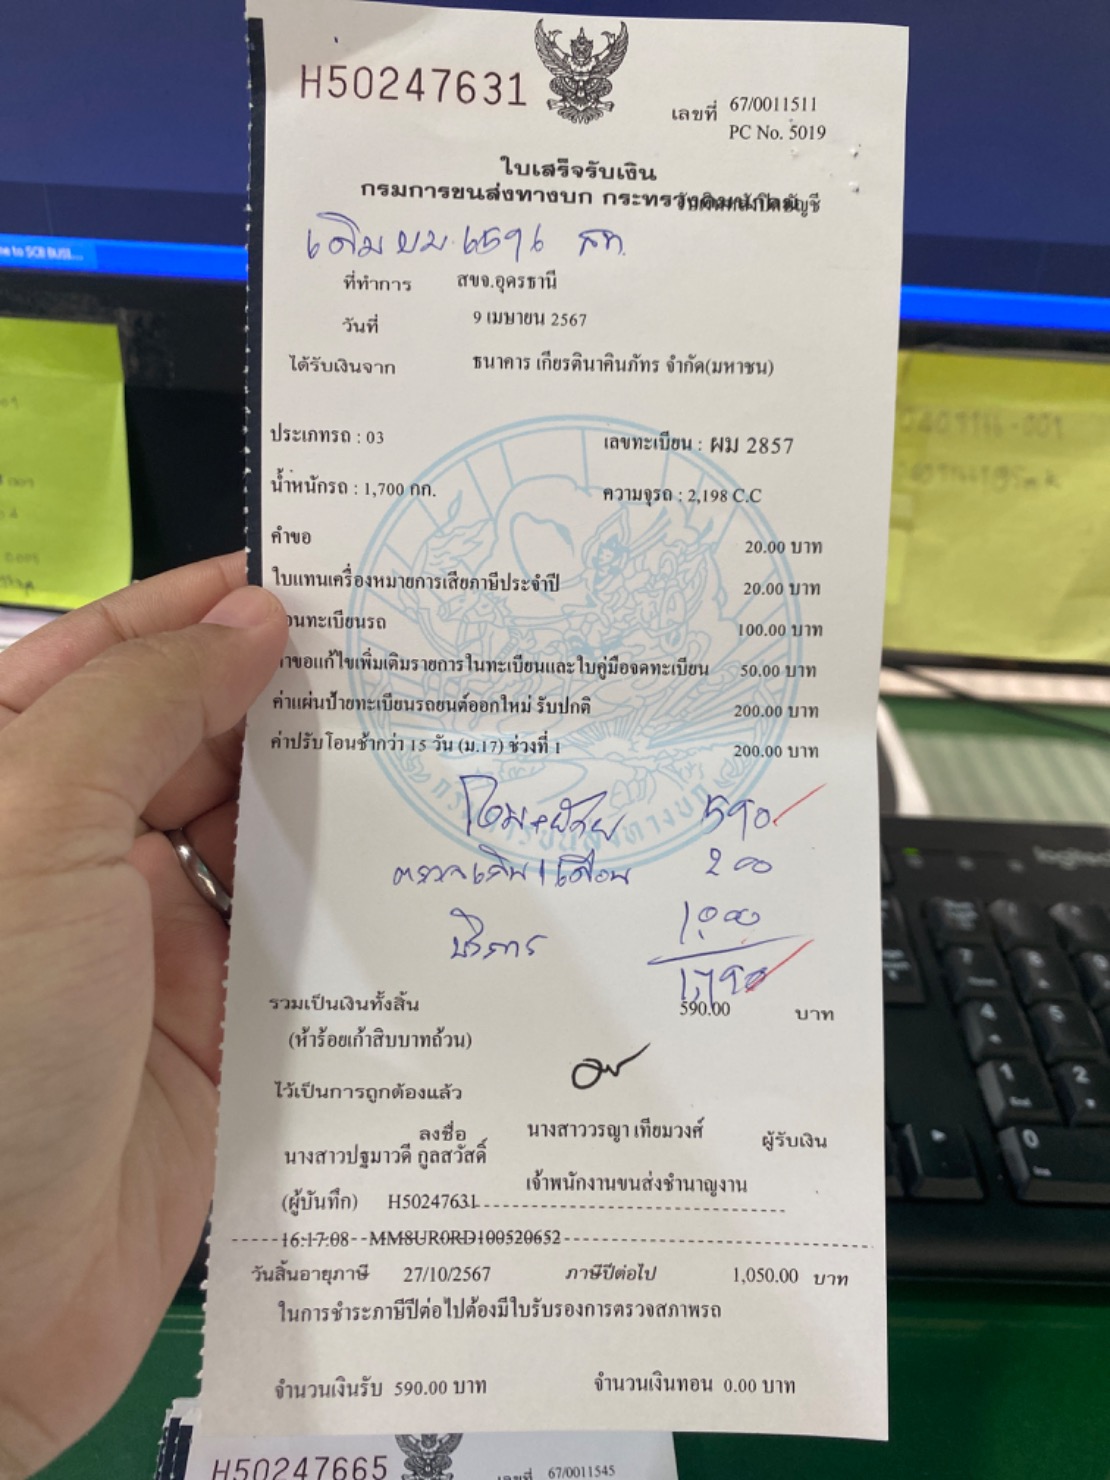 H50247631
เลขที่ 67/0011511
PC No. 5019
ใบเสร็จรับเงิน
กรมการขนส่งทางบก กระทรวงคมนาคม
เดิม
ที่ทำการ สขจ.อุดรธานี
วันที่ 9 เมษายน 2567
ได้รับเงินจาก ธนาคาร เกียรตินาคินภัทร จำกัด(มหาชน)
ประเภทรถ : 03 เลขทะเบียน : ผม 2857
น้ำหนักรถ : 1,700 กก. ความจุรถ : 2,198 C.C
คำขอ 20.00 บาท
ใบแทนเครื่องหมายการเสียภาษีประจำปี 20.00 บาท
อนทะเบียนรถ 100.00 บาท
าขอแก้ไขเพิ่มเติมรายการในทะเบียนและใบคู่มือจดทะเบียน 50.00 บาท
ค่าแผ่นป้ายทะเบียนรถยนต์ออกใหม่ รับปกติ 200.00 บาท
ค่าปรับโอนช้ากว่า 15 วัน (ม.17) ช่วงที่ 1 200.00 บาท
โอน+ย้าย 590
200
บริการ 1,000
1,790
รวมเป็นเงินทั้งสิ้น 590.00 บาท
(ห้าร้อยเก้าสิบบาทถ้วน)
ไว้เป็นการถูกต้องแล้ว
ลงชื่อ นางสาววรญา เทียมวงศ์ ผู้รับเงิน
นางสาวปฐมาวดี กูลสวัสดิ์
เจ้าพนักงานขนส่งชำนาญงาน
(ผู้บันทึก) H50247631
16:17:08 MM8UR0RD100520652
วันสิ้นอายุภาษี 27/10/2567 ภาษีปีต่อไป 1,050.00 บาท
ในการชำระภาษีปีต่อไปต้องมีใบรับรองการตรวจสภาพรถ
จำนวนเงินรับ 590.00 บาท จำนวนเงินทอน 0.00 บาท
H50247665
เลขที่ 67/0011545